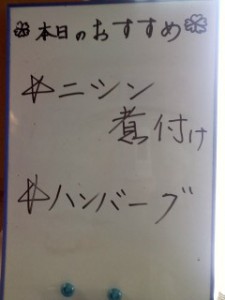 ❀本日のおすすめ❀
☆ニシン
煮付け
☆ハンバーグ